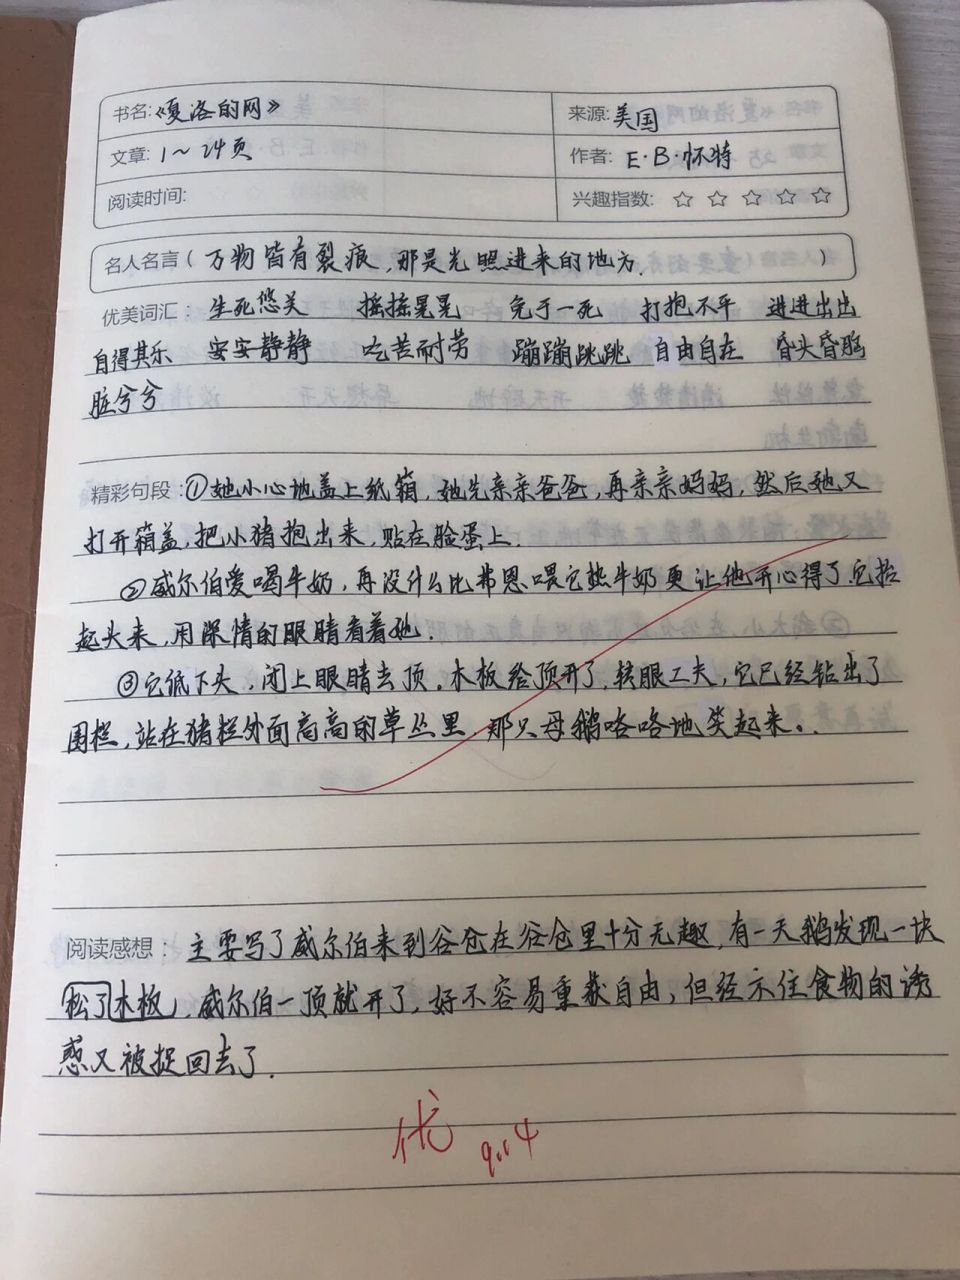 书名:《夏洛的网》 来源: 美国
文章: 1～24页 作者: E·B·怀特
阅读时间: 兴趣指数: ☆ ☆ ☆ ☆ ☆
名人名言（万物皆有裂痕,那是光照进来的地方.）
优美词汇: 生死悠关 摇摇晃晃 免于一死 打抱不平 进进出出
自得其乐 安安静静 吃苦耐劳 蹦蹦跳跳 自由自在 昏头昏脑
脏兮兮
精彩句段:①她小心地盖上纸箱,她先亲亲爸爸,再亲亲妈妈,然后她又
打开箱盖,把小猪抱出来,贴在脸蛋上.
②威尔伯爱喝牛奶,再没什么比弗恩喂它热牛奶更让他开心得了.它抬
起头来,用深情的眼睛看着她.
③它低下头,闭上眼睛去顶.木板给顶开了,转眼工夫,它已经钻出了
围栏,站在猪栏外面高高的草丛里,那只母鹅咯咯地笑起来.
阅读感想: 主要写了威尔伯来到谷仓在谷仓里十分无趣,有一天鹅发现一块
松了木板,威尔伯一顶就开了,好不容易重获自由,但经示住食物的诱
惑又被捉回去了.
优 9.14